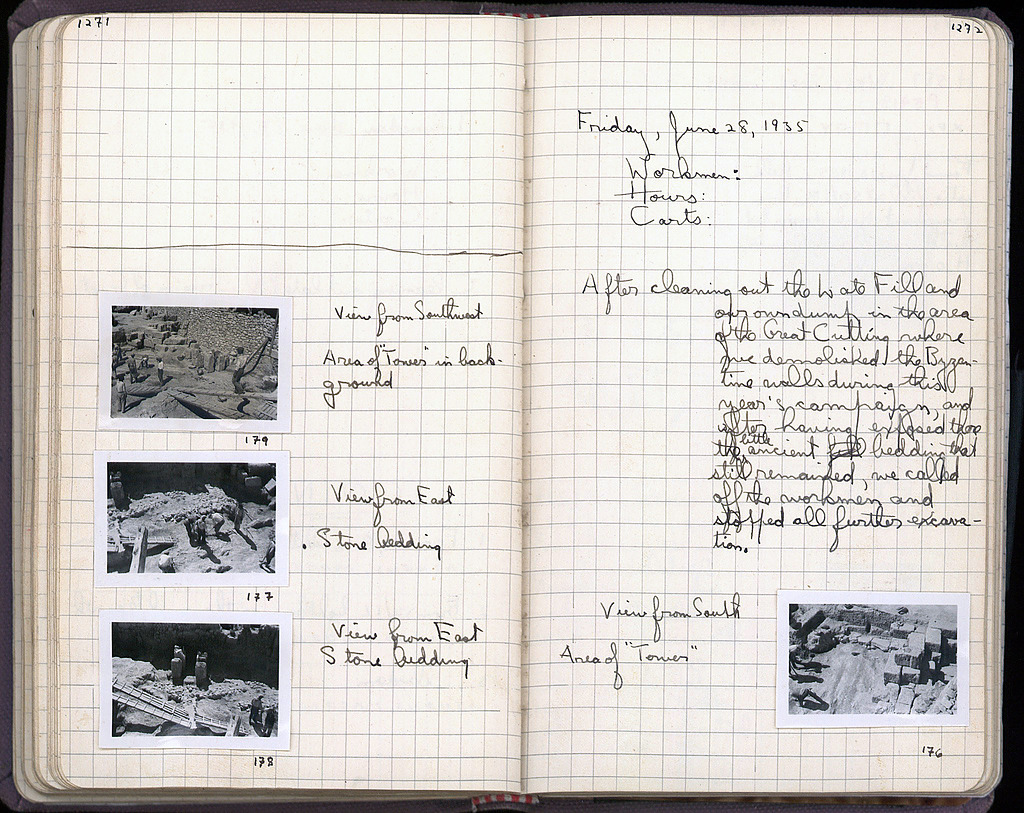 1271
View from Southwest
Area of "Tower" in back-
ground
179
View from East
Stone bedding
177
View from East
Stone bedding
178
1272
Friday, June 28, 1935
Workmen:
Hours:
Carts:
After cleaning out the Late Fill and
our own dump in the area
of the Great Cutting where
we demolished the Byzan-
tine walls during this
year's campaign, and
after having exposed
the little ancient bedding that
still remained, we called
off the workmen and
stopped all further excava-
tion.
View from South
Area of "Tower"
176